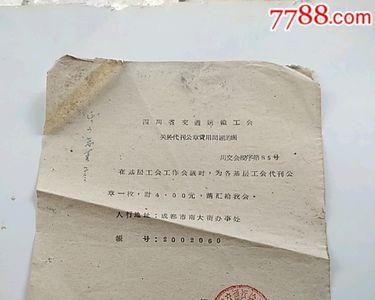 7788.com
四川省交通运输工会
关於代刊公章費用問題的函
川交会組字第85号
在基层工会工作会議时，为各基层工会代刊公
章一枚，計4.00元，請汇給我会。
人行地址：成都市南大街办事处
帳号：2002060